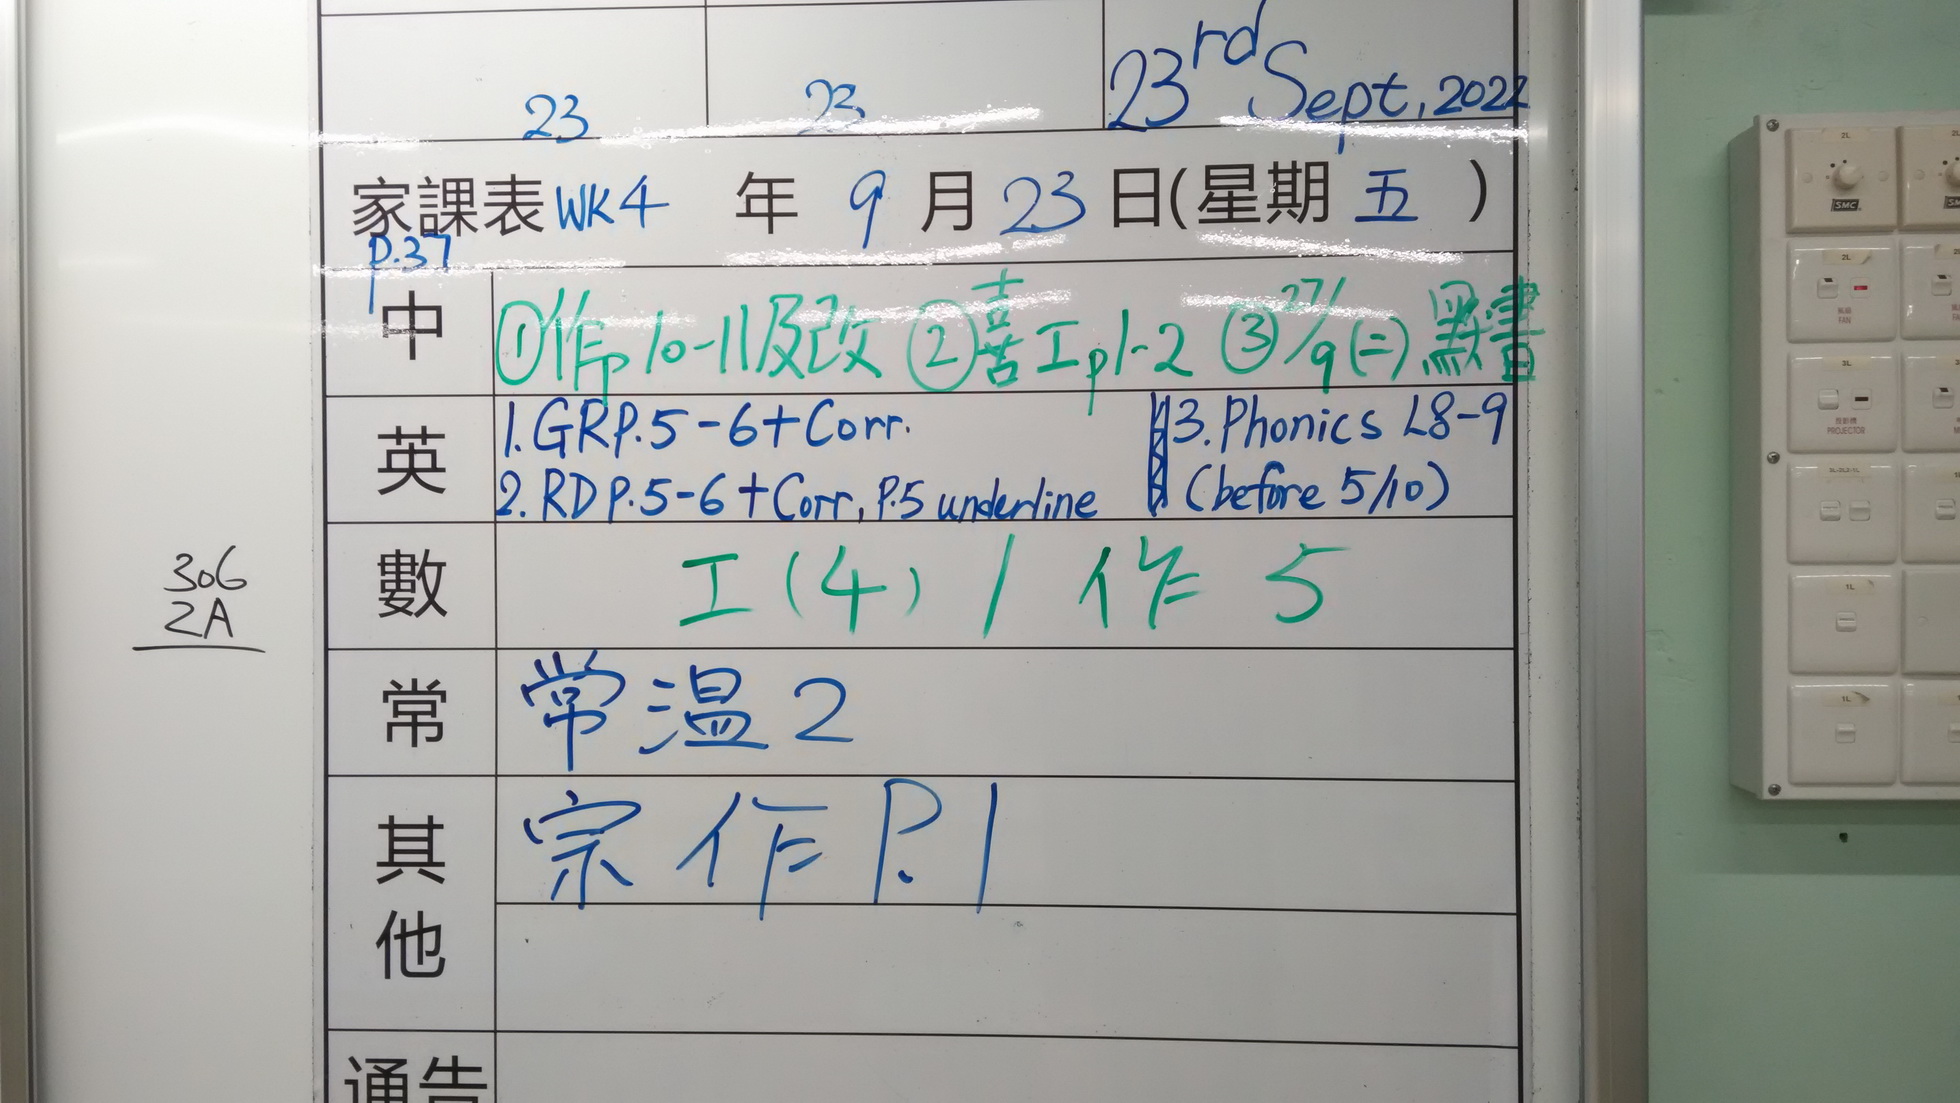 23 23 23rd Sept, 2022
家課表 WK4 年 9 月 23 日(星期 五 )
P.37
中 ①作p10-11及改 ②喜工p1-2 ③27/9(二)默書
英 1. GR P.5-6 + Corr.
2. RD P.5-6 + Corr, P.5 underline
3. Phonics L8-9
(before 5/10)
數 工(4) / 作 5
常 常温2
其他 宗作 P.1
通告
306
2A
2L
2L
SMC
2L
FAN
3L
PROJECTOR
1L
1L